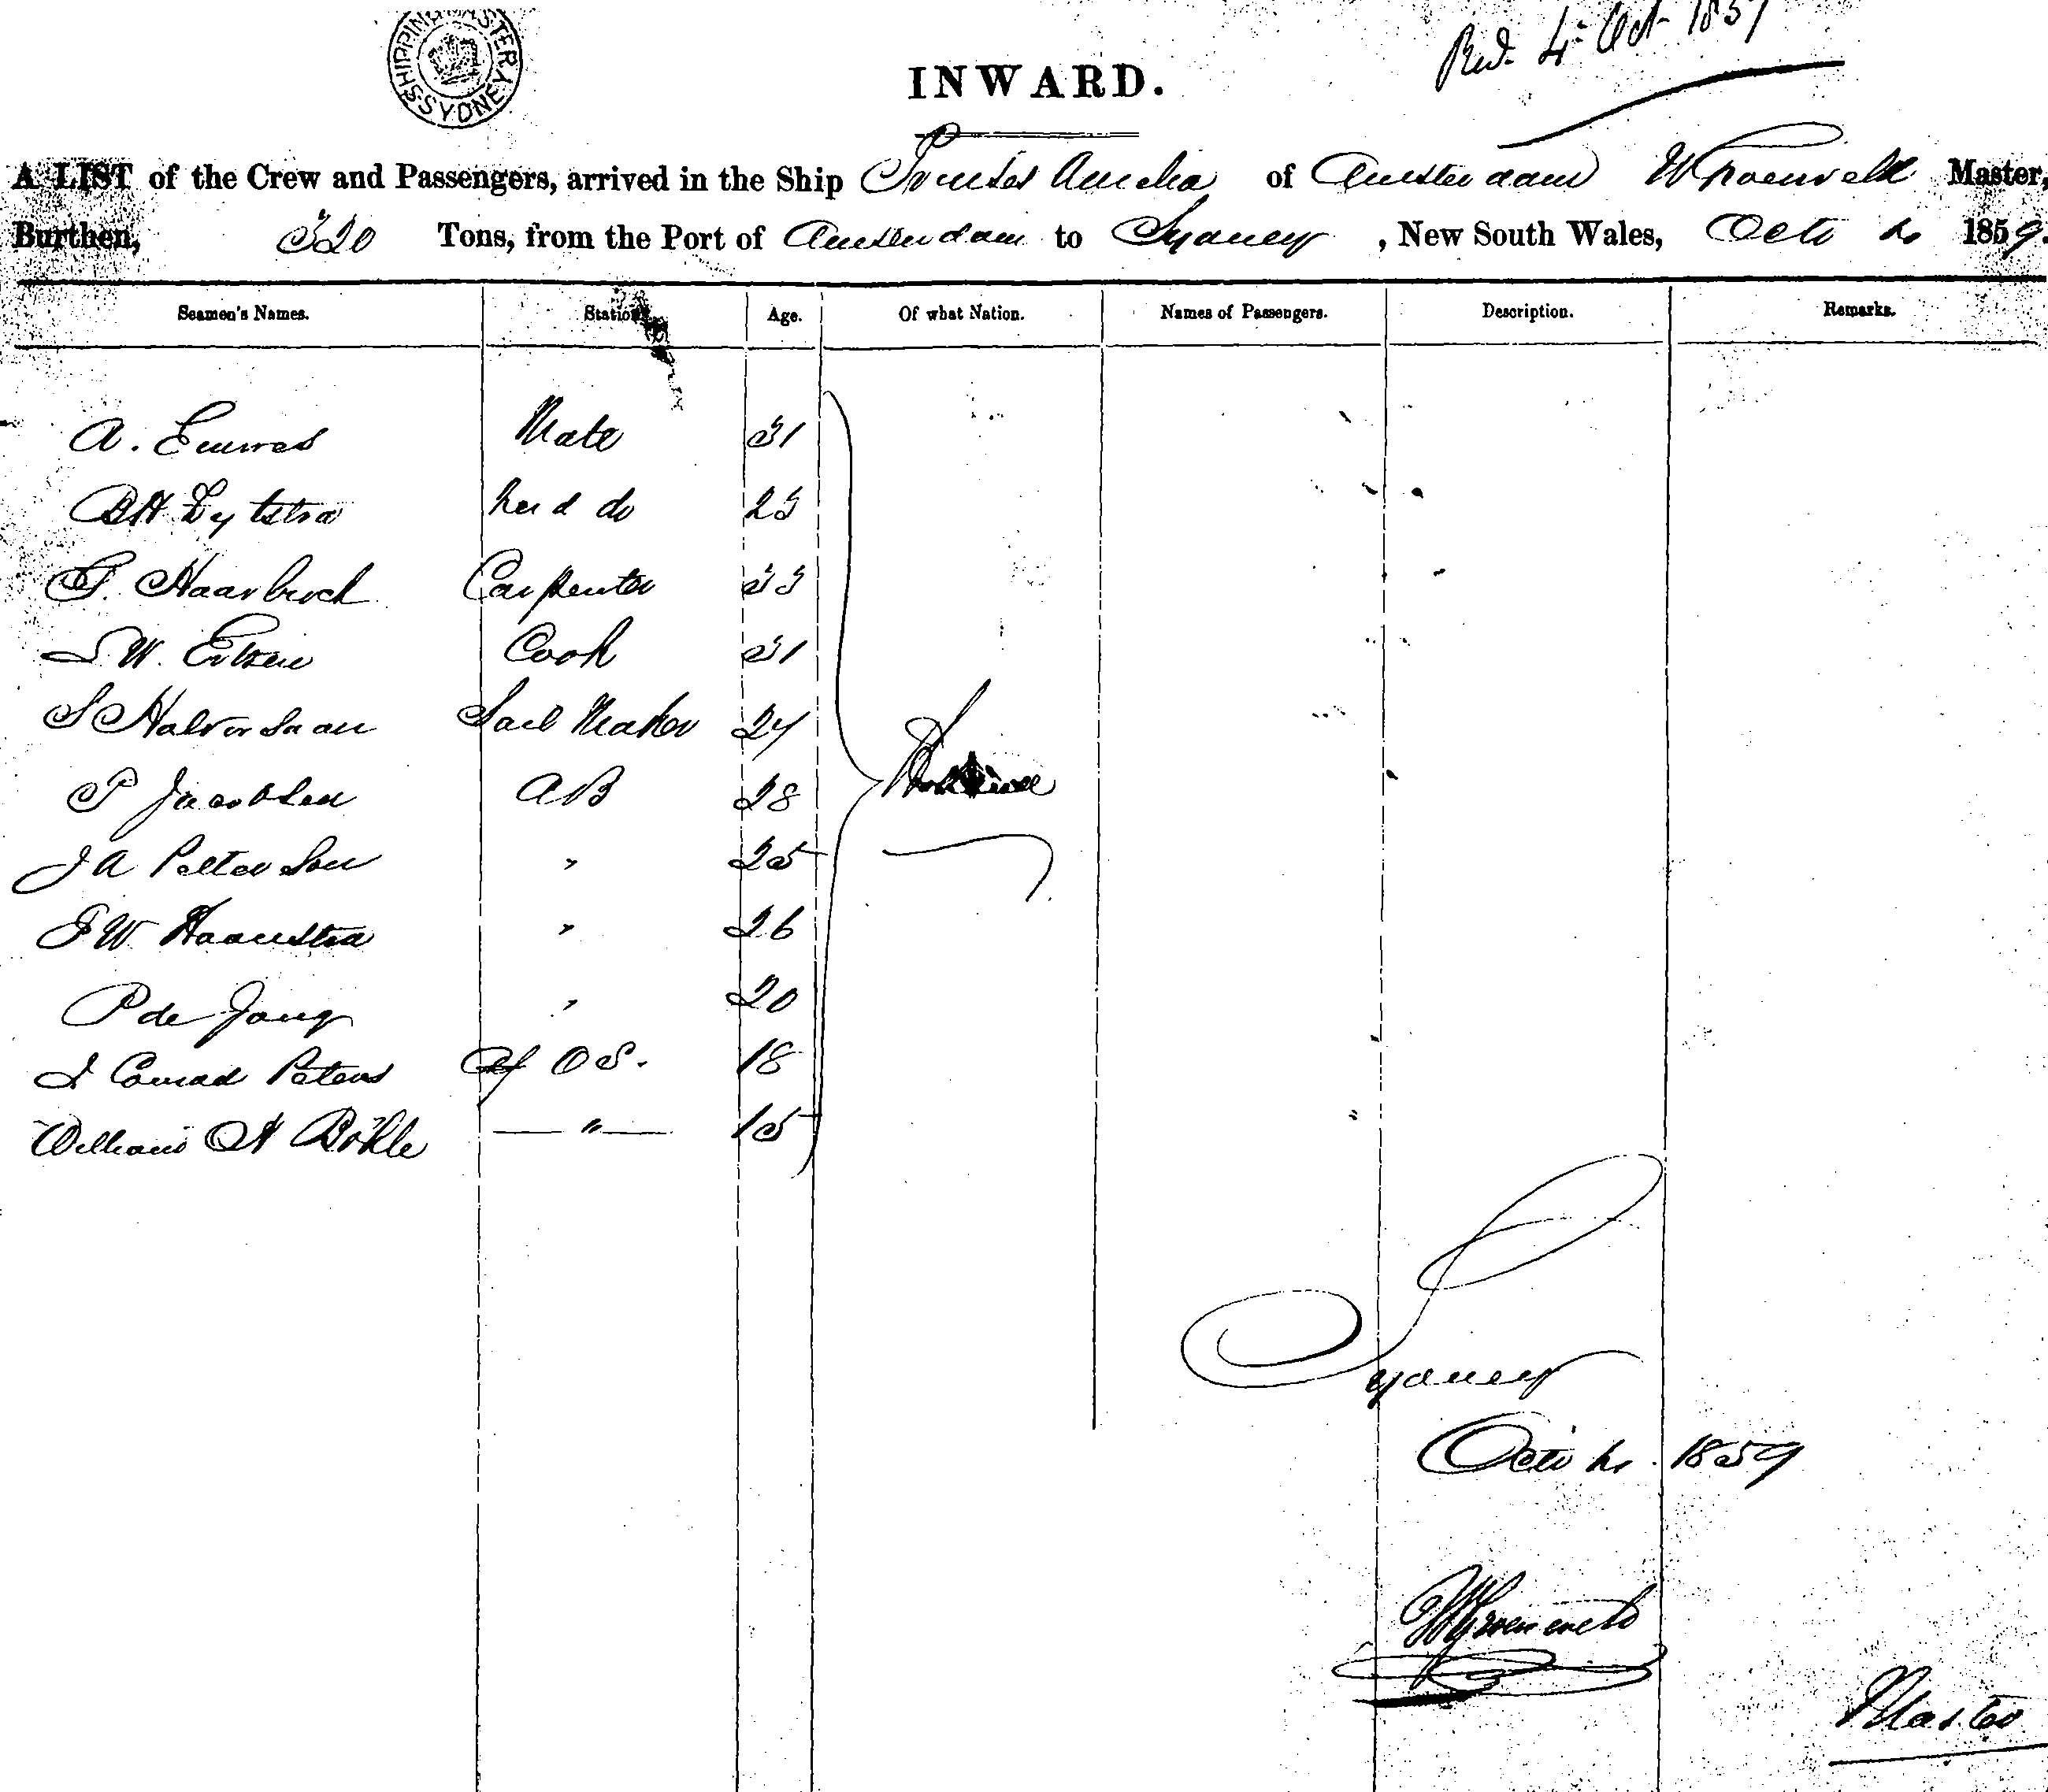 SHIPPING MASTERY SYDNEY
Recd. 4 Oct 1859
INWARD.
A LIST of the Crew and Passengers, arrived in the Ship Princes Amelia of Amsterdam W Groenveld Master,
Burthen, 320 Tons, from the Port of Amsterdam to Sydney, New South Wales, Octo 4 1859.
Seamen's Names. Station. Age. Of what Nation. Names of Passengers. Description. Remarks.
A. Mate 31
BH Dytstra do 23
Haarbuck Carpenter 33
W. Cook 31
S Halversaan Sail Maker 24
P Jacobsen AB 28
J A Petterson " 25
F W Haanstra " 26
P de Jong " 20
J Conrad Peters OS. 18
William H Böhle — " — 15
Sydney
Octo 4. 1859
W Groeneveld
Master